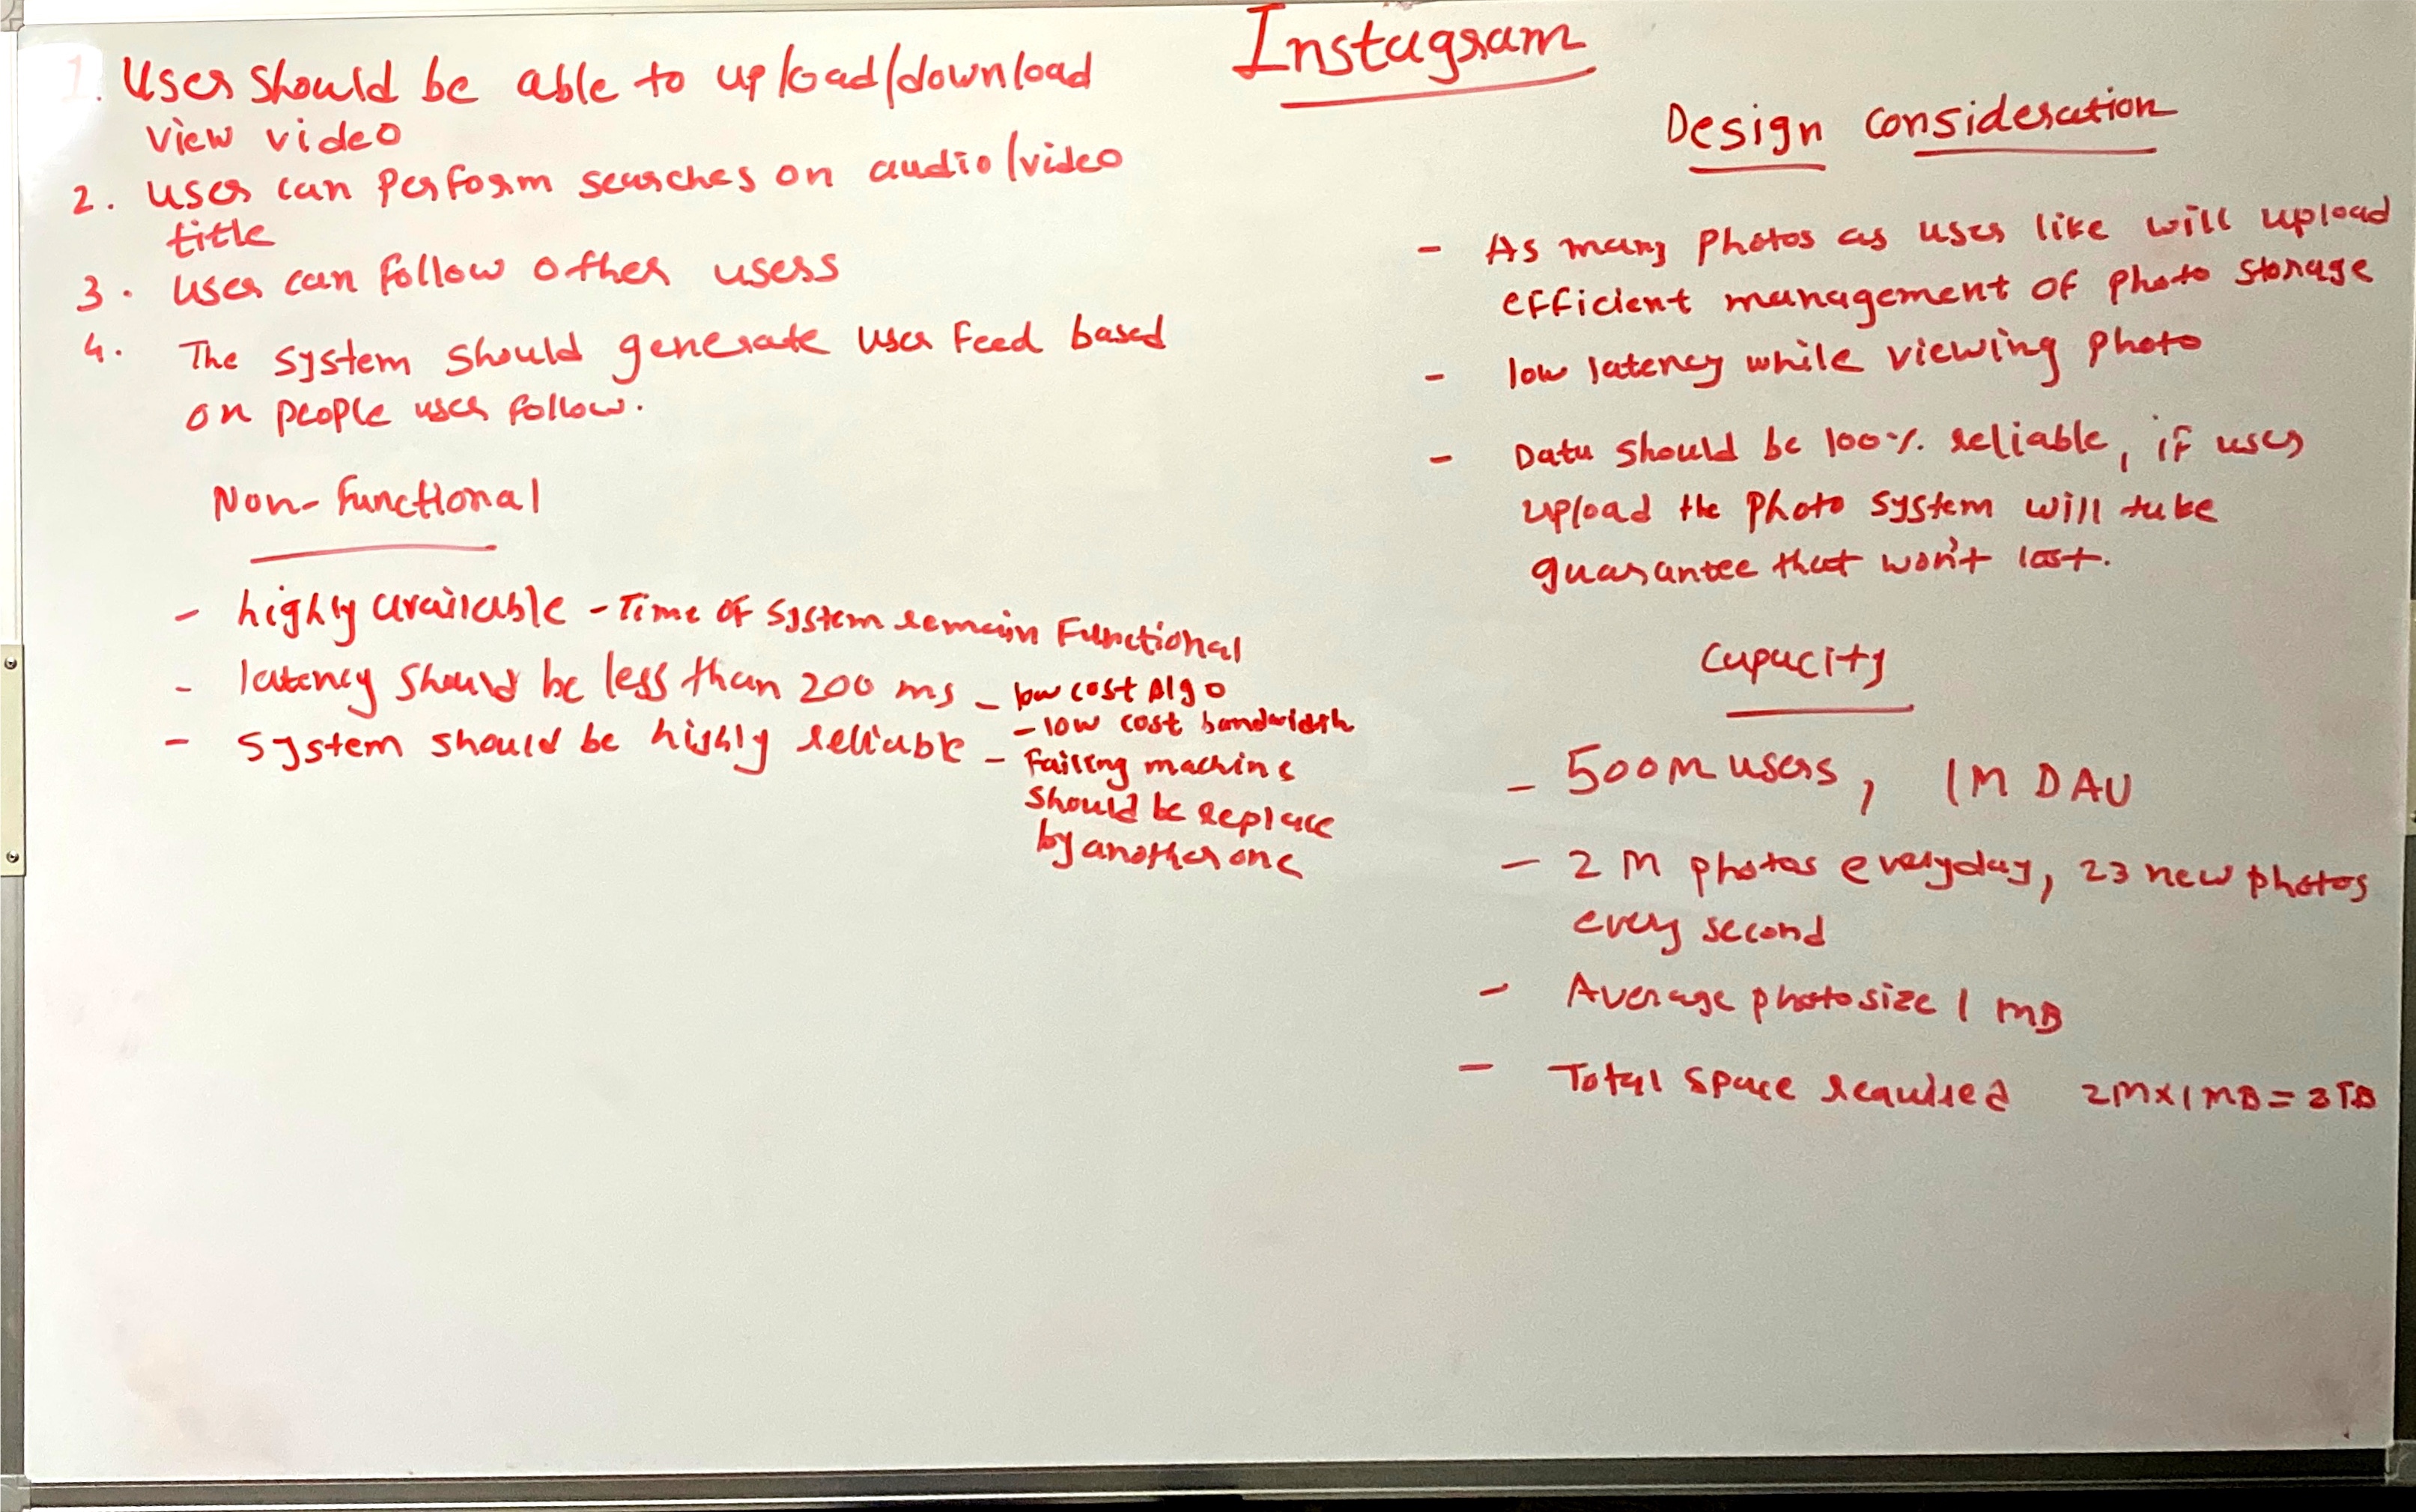 Instagram
1. User should be able to upload/download
view video
2. user can perform searches on audio/video
title
3. user can follow other users
4. The system should generate user feed based
on people user follow.
Non-functional
- highly available - Time of system remain Functional
- latency should be less than 200 ms - low cost Algo
- low cost bandwidth
- system should be highly reliable - Failing machine
should be replace
by another one
Design consideration
- As many photos as user like will upload
efficient management of photo storage
- low latency while viewing photo
- Data should be 100%. reliable, if user
upload the photo system will take
guarantee that won't lost.
Capacity
- 500M users, 1M DAU
- 2 M photos everyday, 23 new photos
every second
- Average photo size 1 MB
- Total space required 2M x 1 MB = 2TB